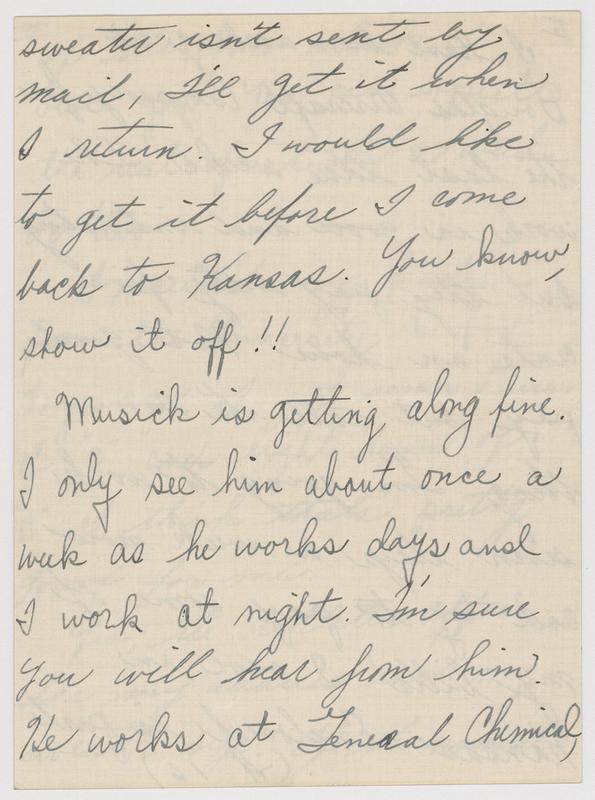 sweater isn't sent by
mail, I'll get it when
I return. I would like
to get it before I come
back to Kansas. You know,
show it off!!
Musick is getting along fine.
I only see him about once a
week as he works days and
I work at night. I'm sure
you will hear from him.
He works at General Chemical,